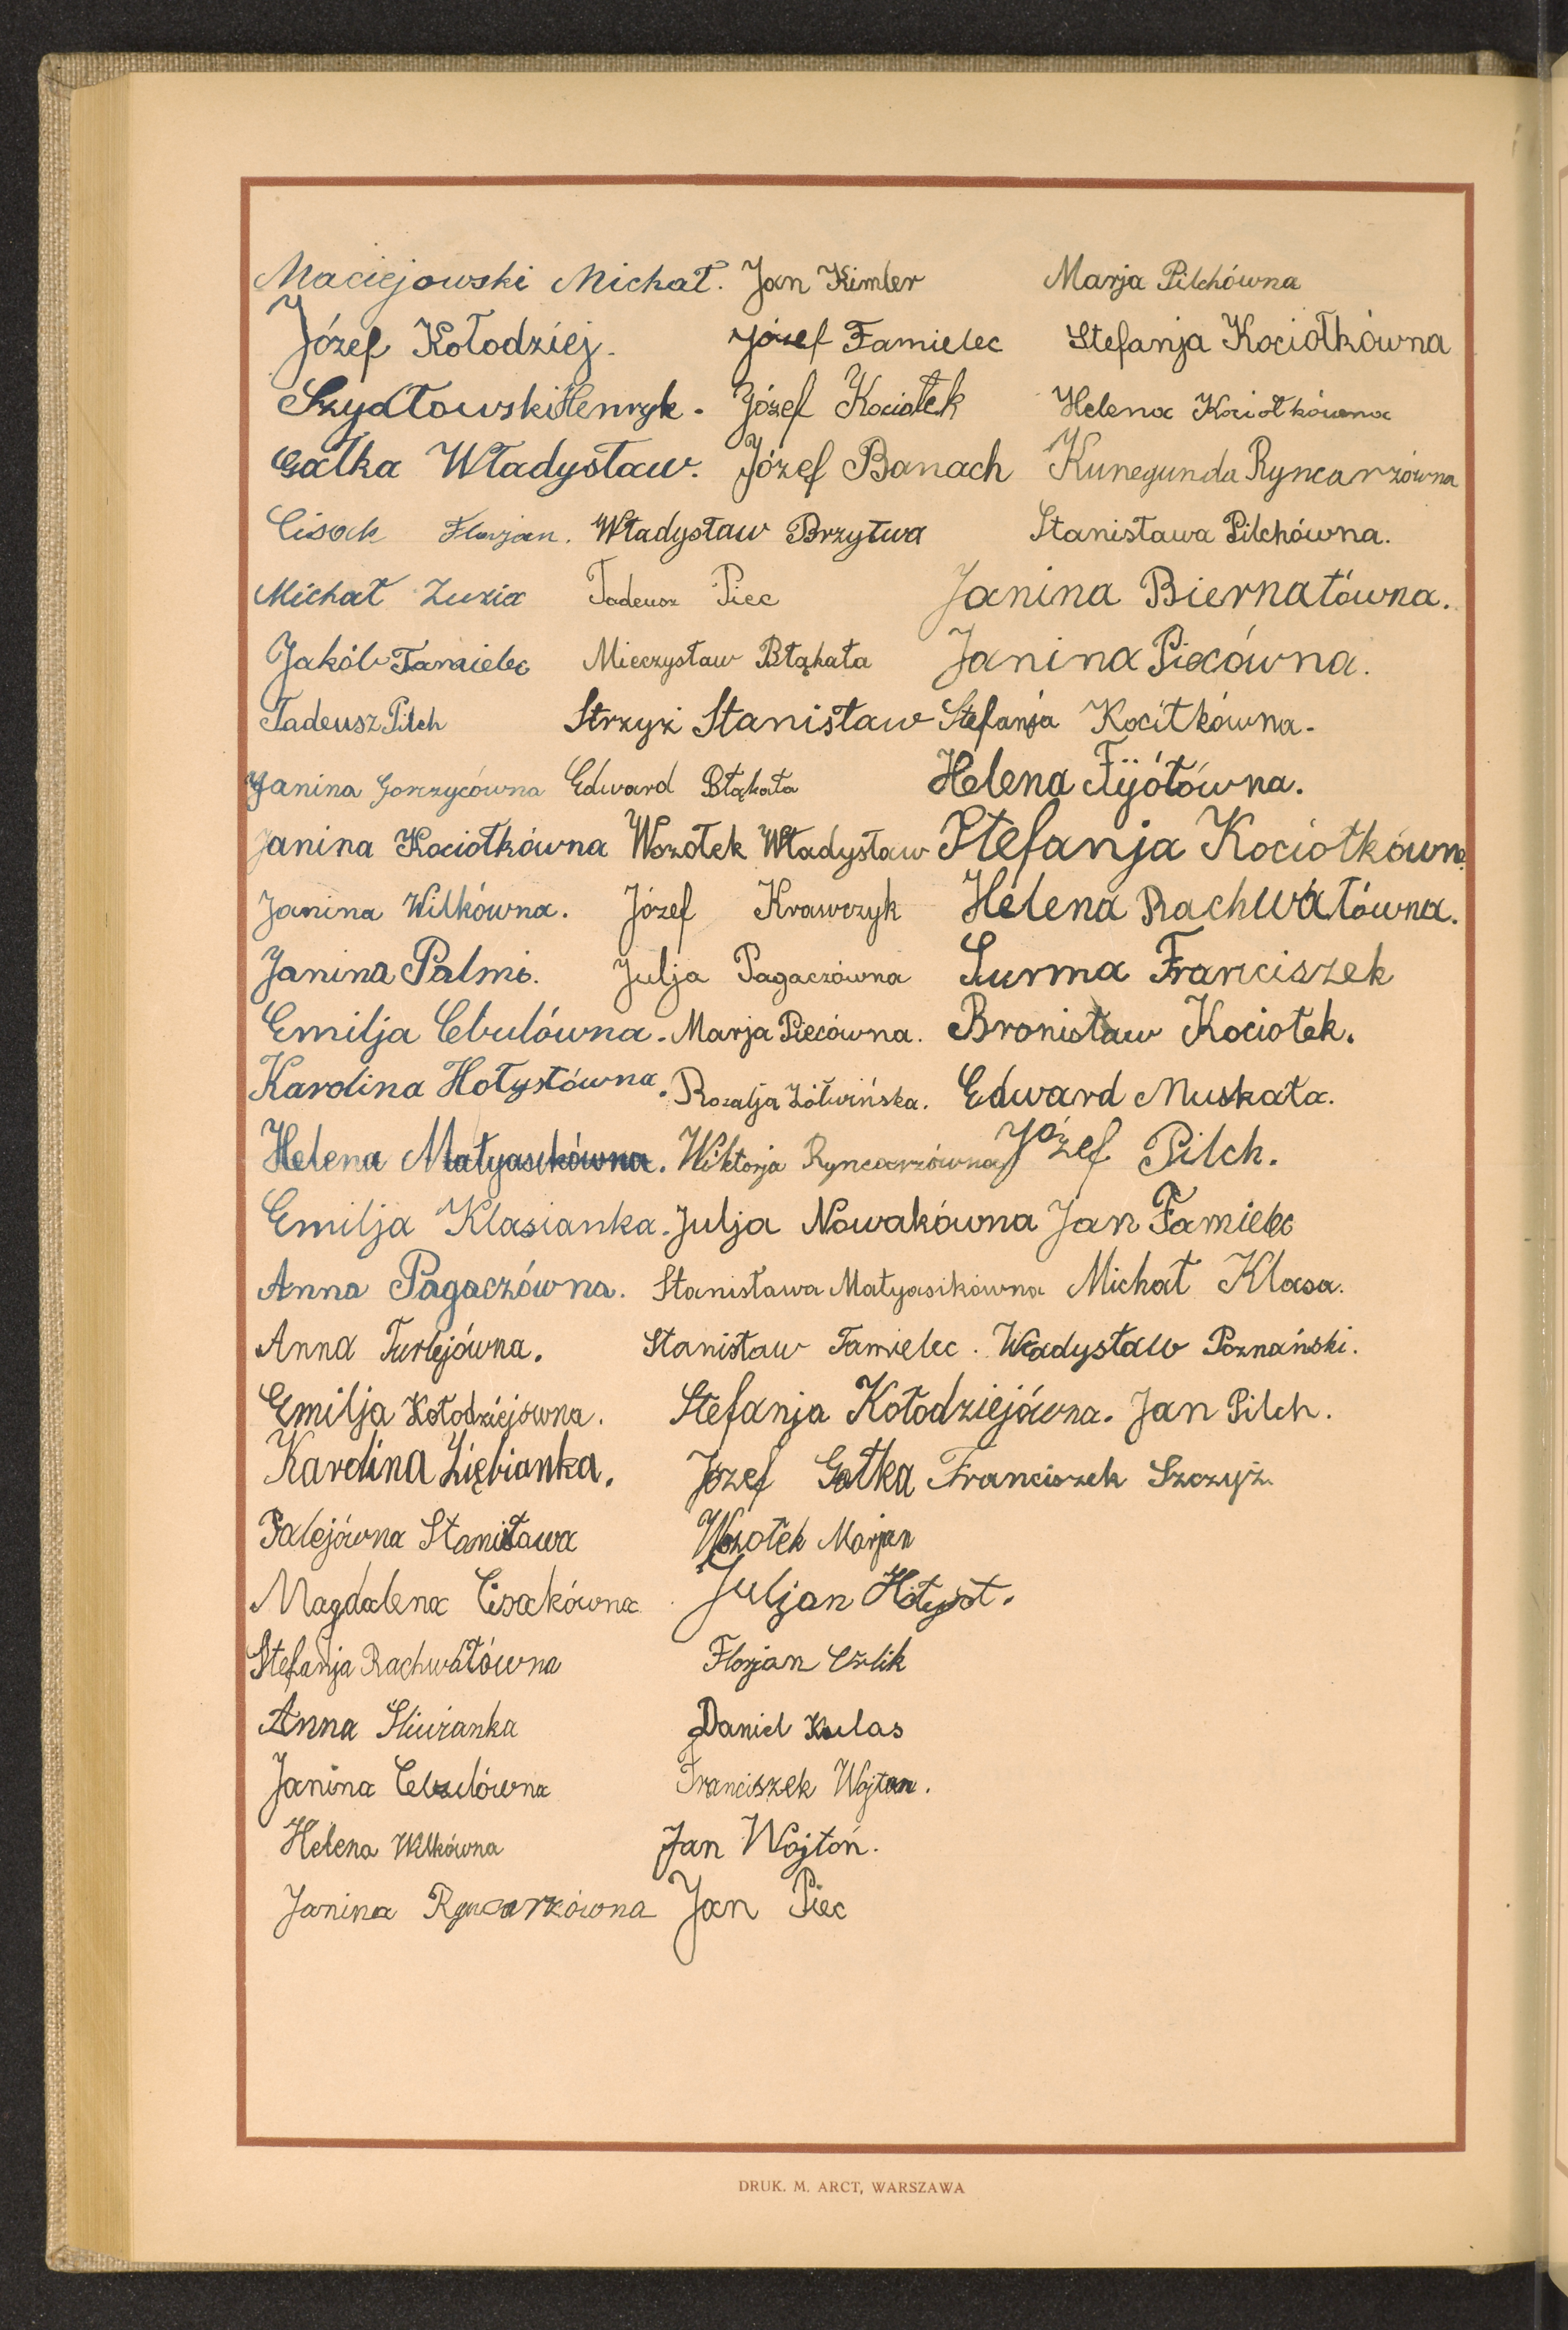 Maciejowski Michał. Jan Kimler Marja Pilchówna
Józef Kołodziej. Józef Famielec Stefanja Kociołkówna
Szydłowski Henryk. Józef Kociołek Helena Kociołkówna
Gałka Władysław. Józef Banach Kunegunda Ryncarzówna
Cisak Florjan. Władysław Brzytwa Stanisława Pilchówna.
Michał Zuzia Tadeusz Piec Janina Biernatówna.
Jakób Famielec Mieczysław Błąkała Janina Piecówna.
Tadeusz Pilch Strzyż Stanisław Stefanja Kocitkówna.
Janina Gorzycówna Edward Błąkała Helena Fijółówna.
Janina Kociołkówna Wszołek Władysław Stefanja Kociołkówna
Janina Wilkówna. Józef Krawczyk Helena Rachwałówna.
Janina Palmi. Julja Pagaczówna Surma Franciszek
Emilja Cebulówna. Marja Piecówna. Bronisław Kociołek.
Karolina Hołystówna. Rozalja Żółwińska. Edward Muskała.
Helena Matyasikówna. Wiktorja Ryncarzówna Józef Pilch.
Emilja Klasianka. Julja Nowakówna Jan Famielec
Anna Pagaczówna. Stanisława Matyasikówna Michał Klasa.
Anna Turlejówna. Stanisław Famielec. Władysław Poznański.
Emilja Kołodziejówna. Stefanja Kołodziejówna. Jan Pilch.
Karolina Ziębianka. Józef Gałka Franciszek Szczyż
Palejówna Stanisława Wszołek Marjan
Magdalena Cisakówna Juljan Hołyst.
Stefanja Rachwałówna Florjan
Anna Śliwianka Daniel Kulas
Janina Cebulówna Franciszek Wojtan.
Helena Wilkówna Jan Wojtoń.
Janina Ryncarzówna Jan Piec
DRUK. M. ARCT, WARSZAWA